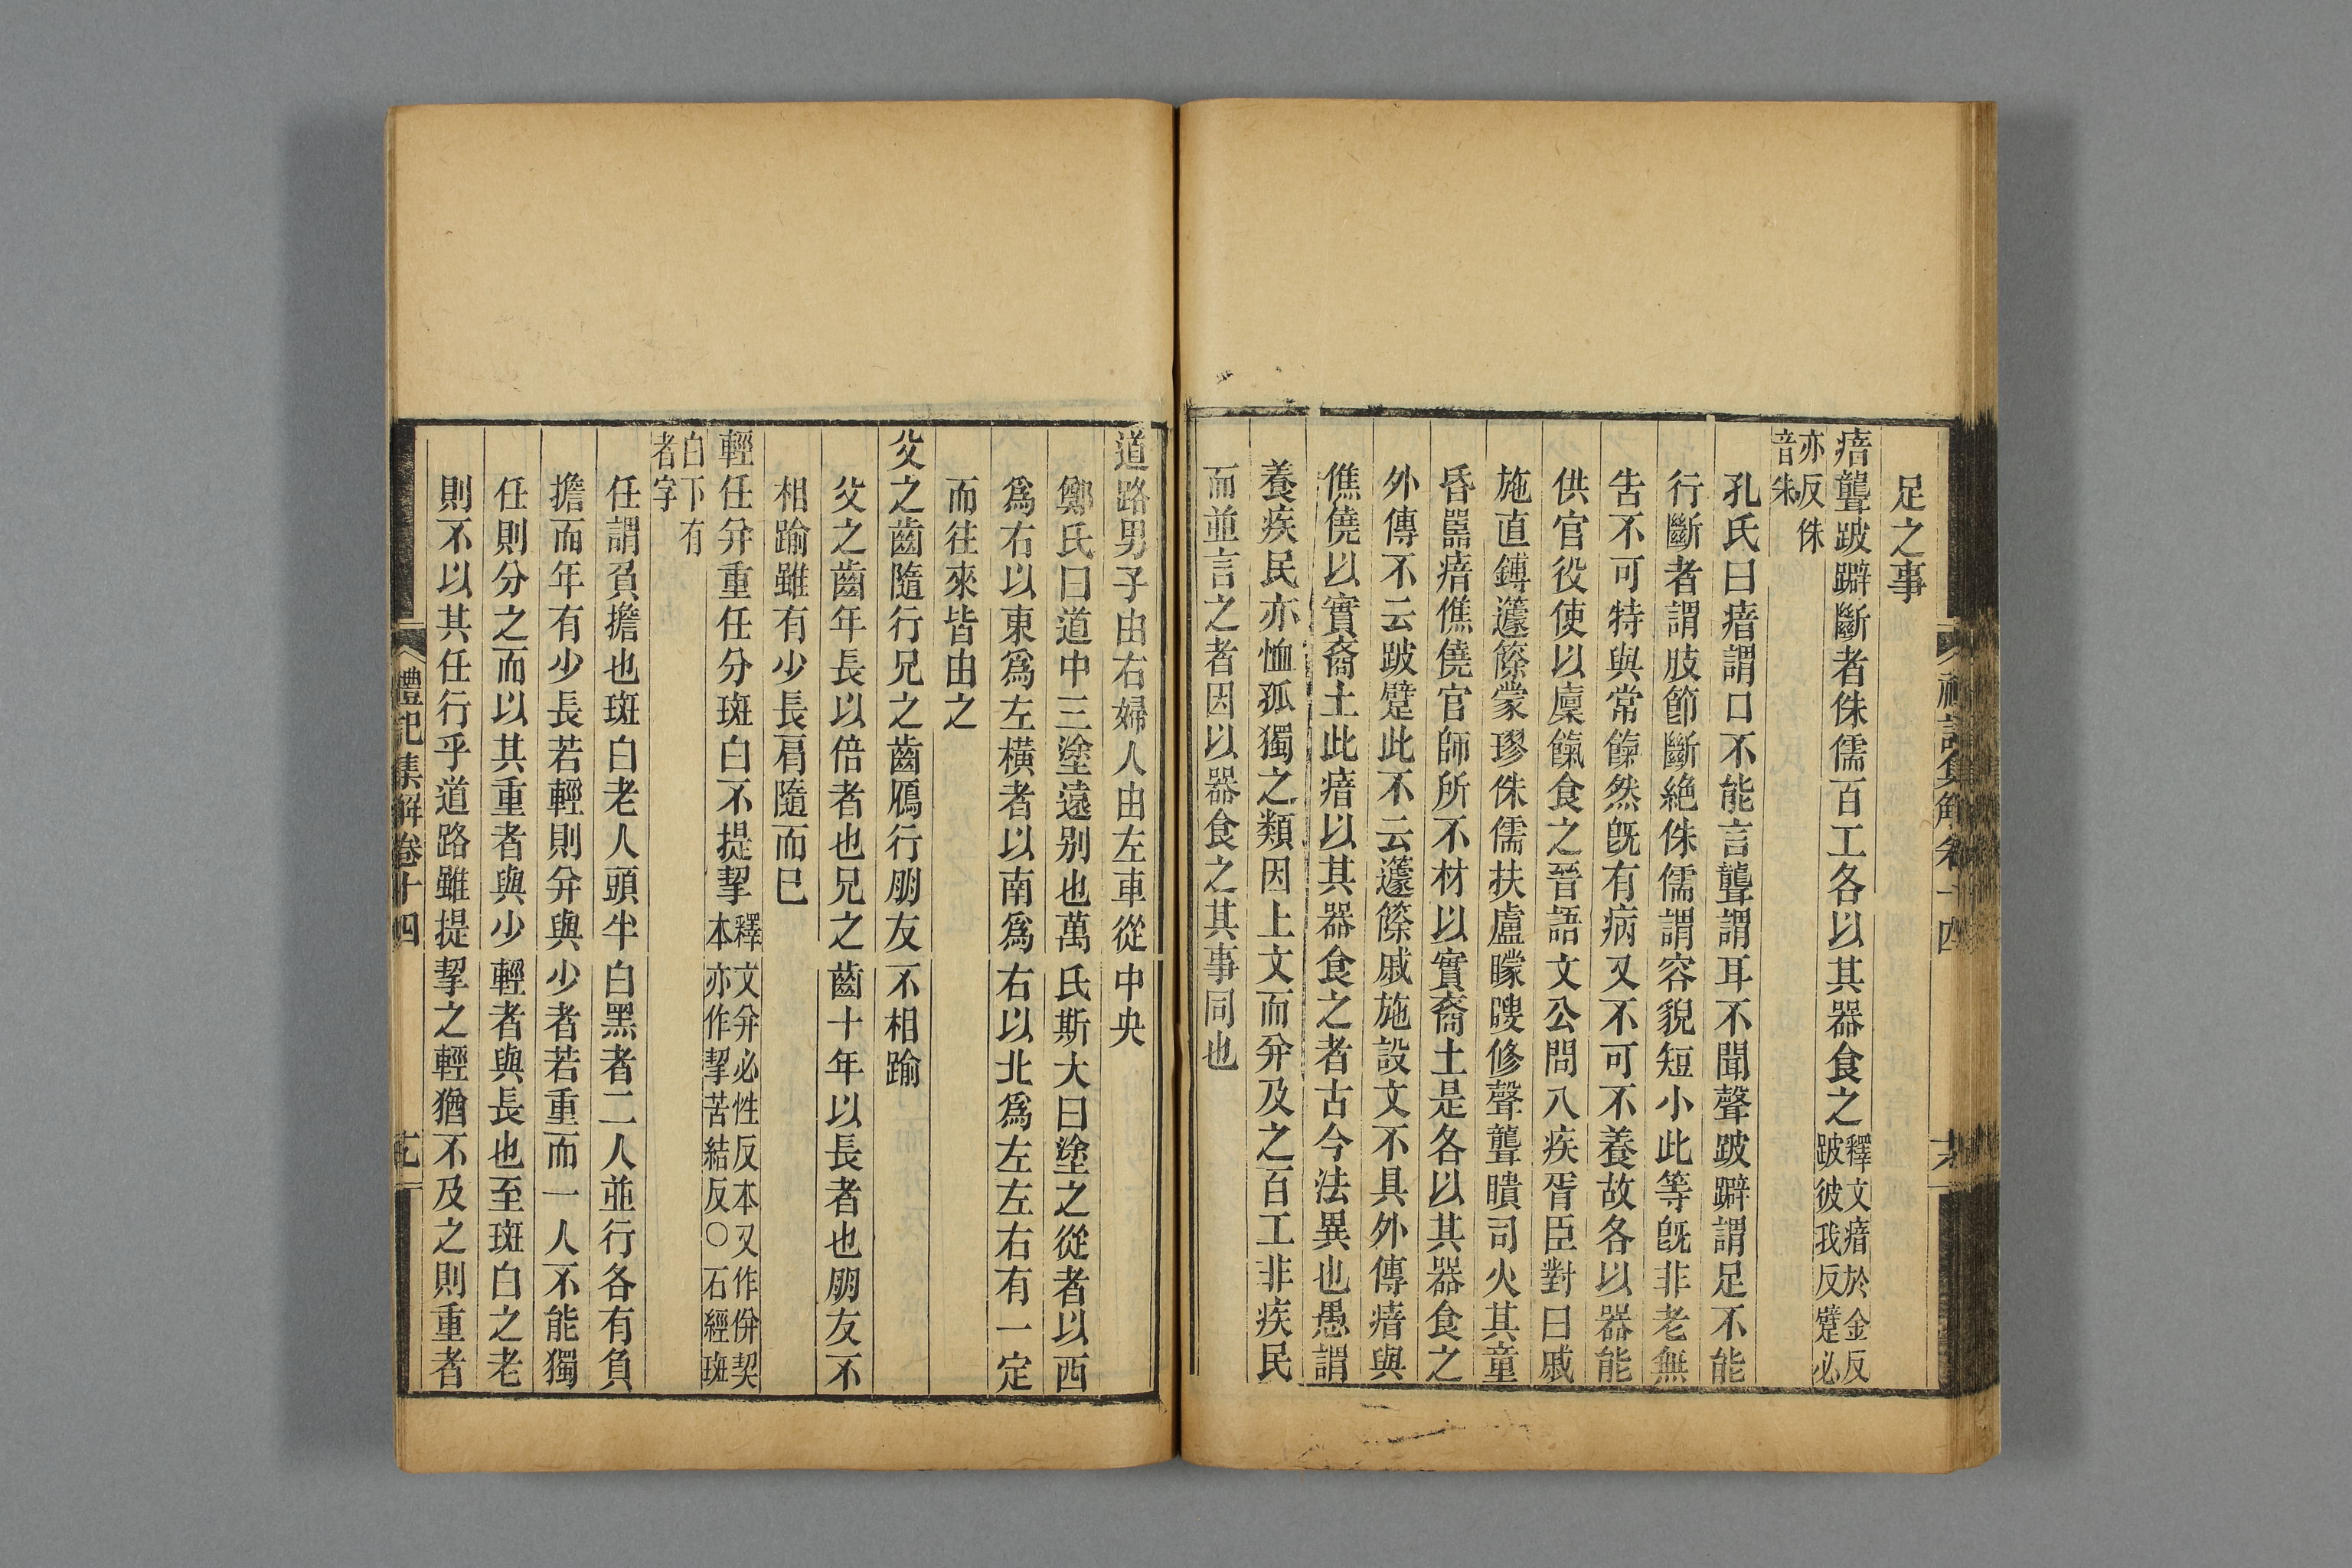 足之事
瘖聾跛躃斷者侏儒百工各以其器食之釋文瘖於金反
跛彼我反躄必
亦反侏
音朱
孔氏曰瘖謂口不能言聾謂耳不聞聲跛躃謂足不能
行斷者謂肢節斷絶侏儒謂容貌短小此等旣非老無
告不可特與常餼然旣有病又不可不養故各以器能
供官役使以廩餼食之晉語文公問八疾胥臣對曰戚
施直鎛蘧篨蒙璆侏儒扶盧矇瞍修聲聾聵司火其童
昏嚚瘖僬僥官師所不材以實裔土是各以其器食之
外傳不云跛躄此不云蘧篨戚施設文不具外傳瘖與
僬僥以實裔土此瘖以其器食之者古今法異也愚謂
養疾民亦恤孤獨之類因上文而并及之百工非疾民
而並言之者因以器食之其事同也
道路男子由右婦人由左車從中央
鄭氏曰道中三塗遠别也萬氏斯大曰塗之從者以西
爲右以東爲左橫者以南爲右以北爲左左右有一定
而往來皆由之
父之齒隨行兄之齒鴈行朋友不相踰
父之齒年長以倍者也兄之齒十年以長者也朋友不
相踰雖有少長肩隨而已
輕任并重任分斑白不提挈釋文并必性反本又作併契
本亦作挈苦結反〇石經斑
白下有
者字
任謂負擔也斑白老人頭半白黑者二人並行各有負
擔而年有少長若輕則并與少者若重而一人不能獨
任則分之而以其重者與少輕者與長也至斑白之老
則不以其任行乎道路雖提挈之輕猶不及之則重者
禮記集解卷十四